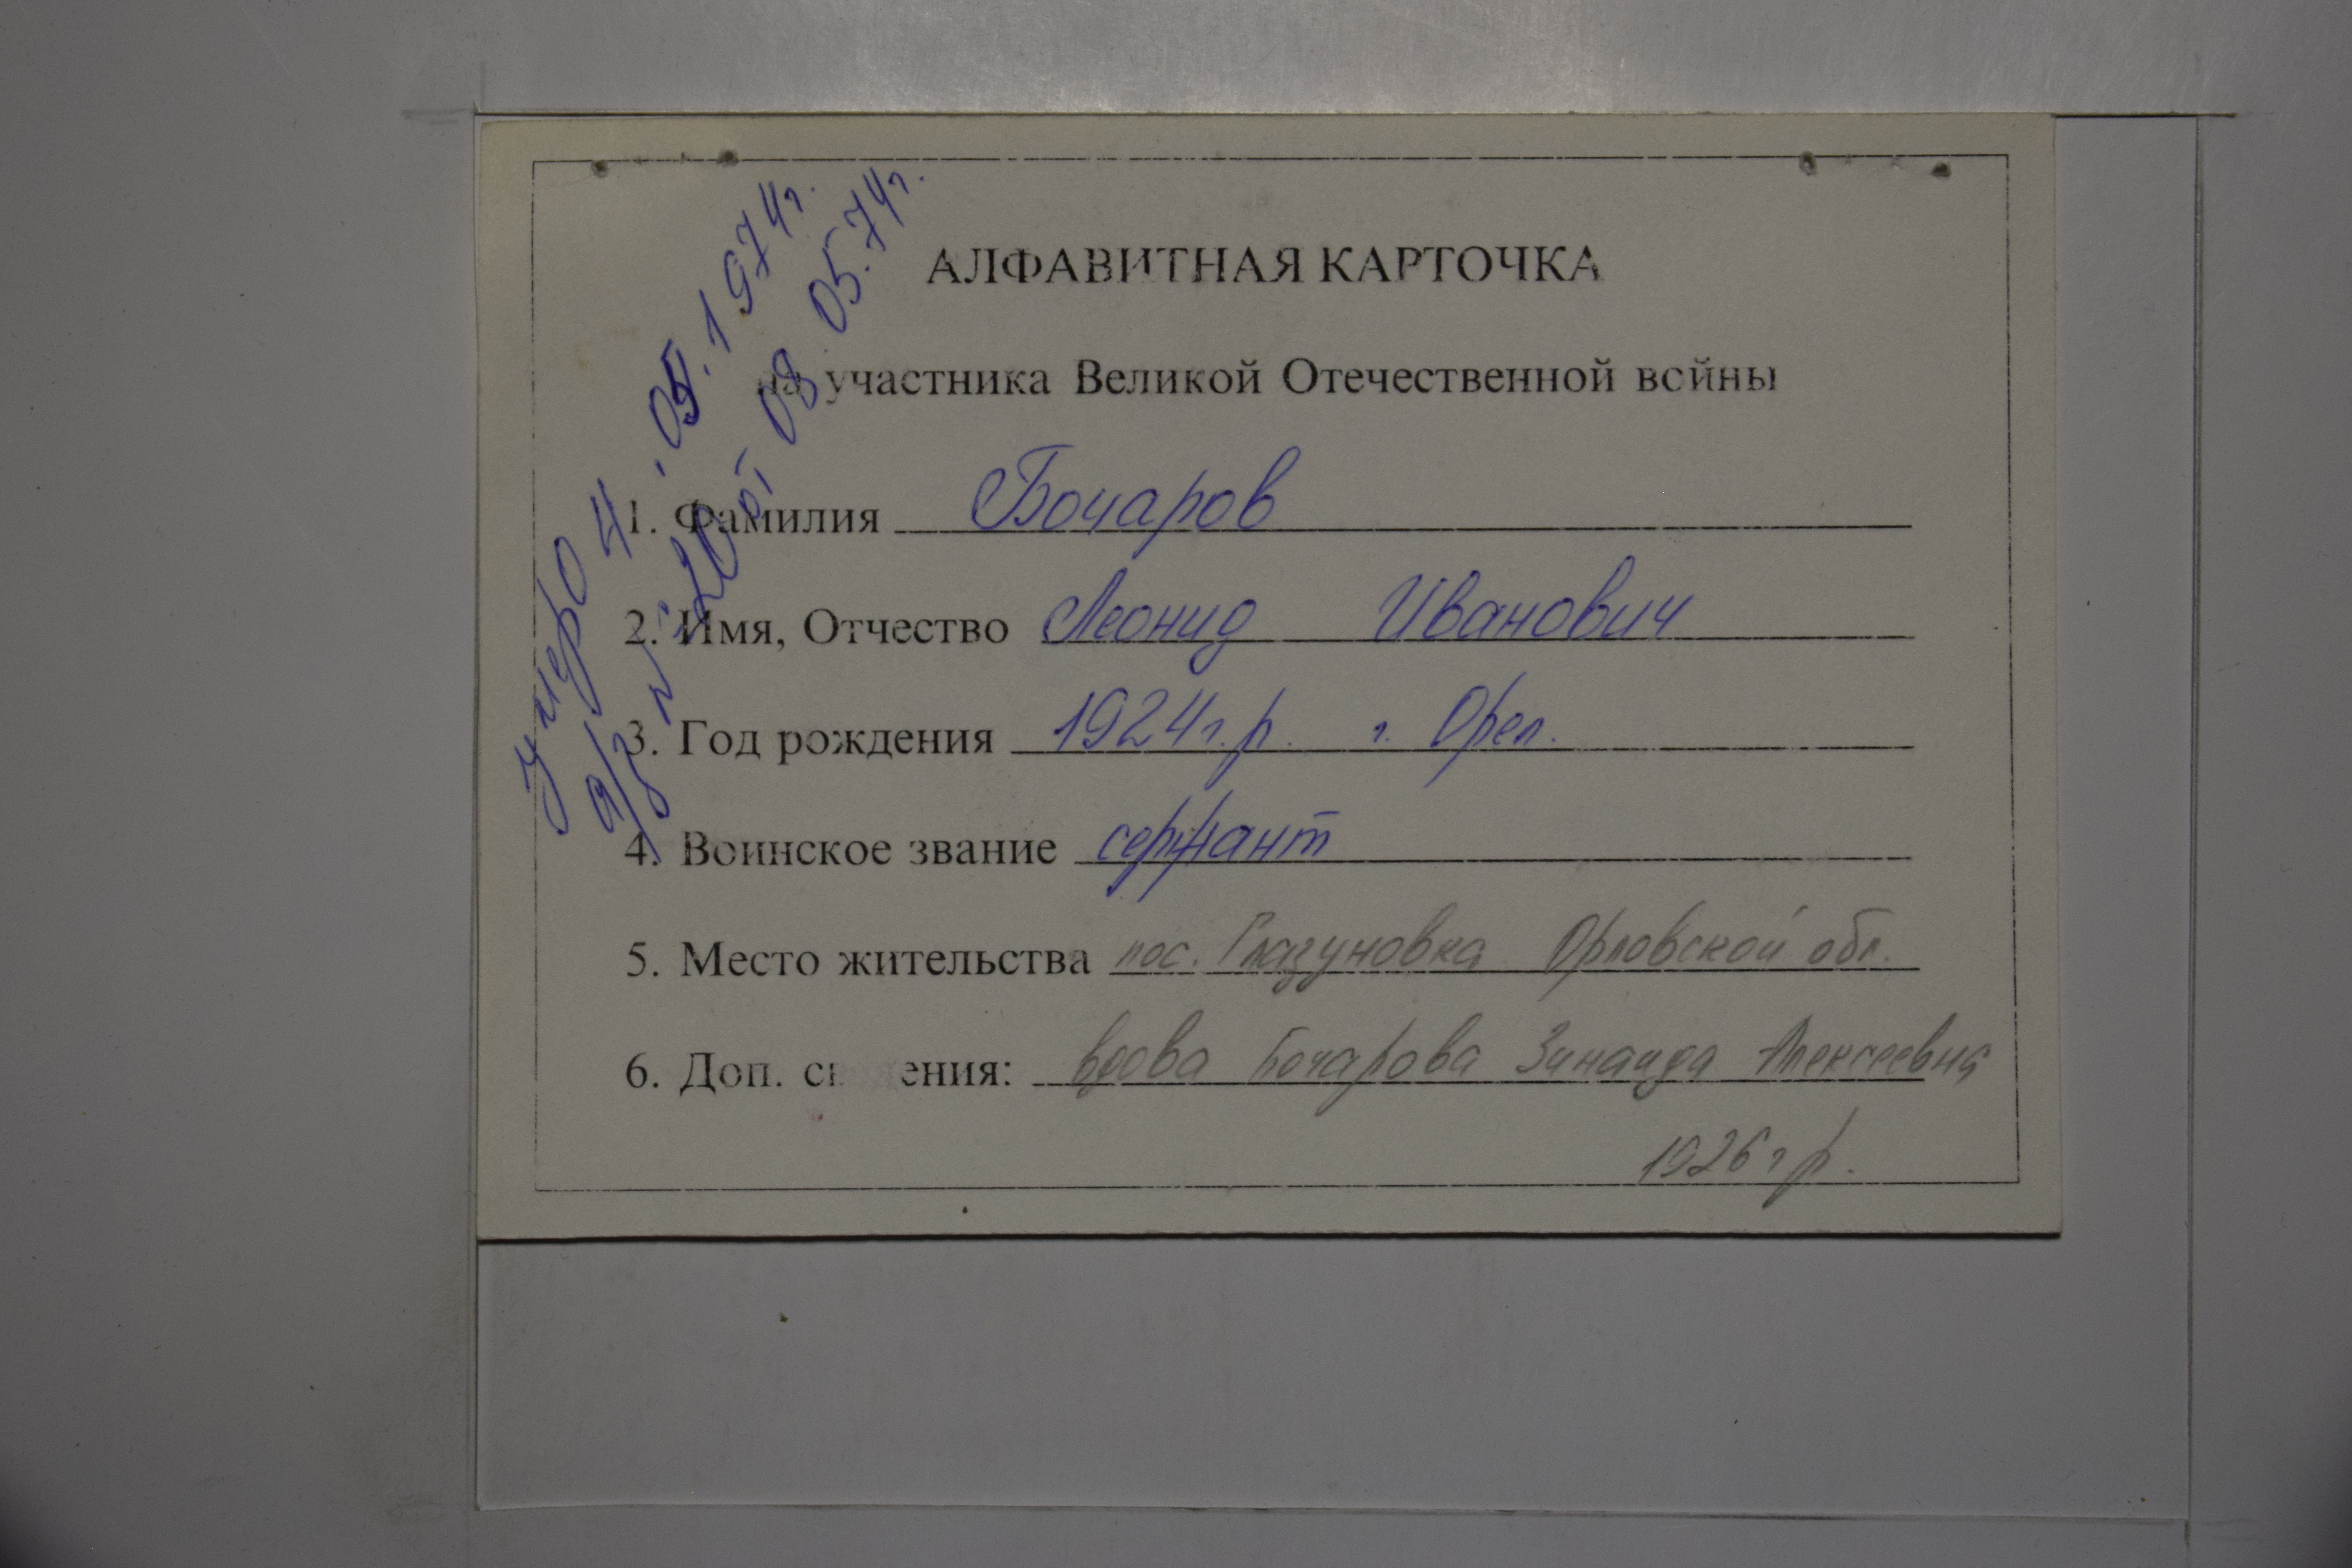 АЛФАВИТНАЯ КАРТОЧКА
на участника Великой Отечественной войны
1. Фамилия Бочаров
2. Имя, Отчество Леонид Иванович
3. Год рождения 1924г.р. г. Орел.
4. Воинское звание сержант
5. Место жительства пос. Глазуновка Орловской обл.
6. Доп. сведения: вдова Бочарова Зинаида Алексеевна
1926 г р.
умер 04.05.1974г.
а/з № 20 от 08.05.74г.